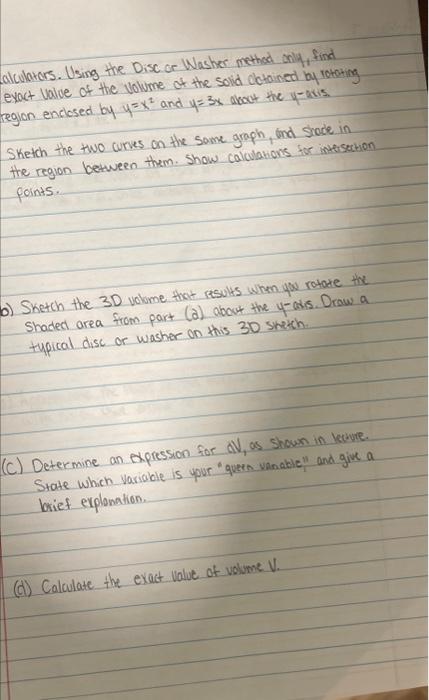 alculators. Using the Disc or Washer method only, find
exact value of the volume of the solid obtained by rotating
region enclosed by y=x² and y=3x about the y-axis
Sketch the two curves on the same graph, and shade in
the region between them. Show calculations for intersection
points.
b) Sketch the 3D volume that results when you rotate the
Shaded area from part (a) about the y-axis. Draw a
typical disc or washer on this 3D sketch.
(C) Determine an expression for ΔV, as shown in lecture.
State which variable is your "queen variable," and give a
brief explanation.
(d) Calculate the exact value of volume V.